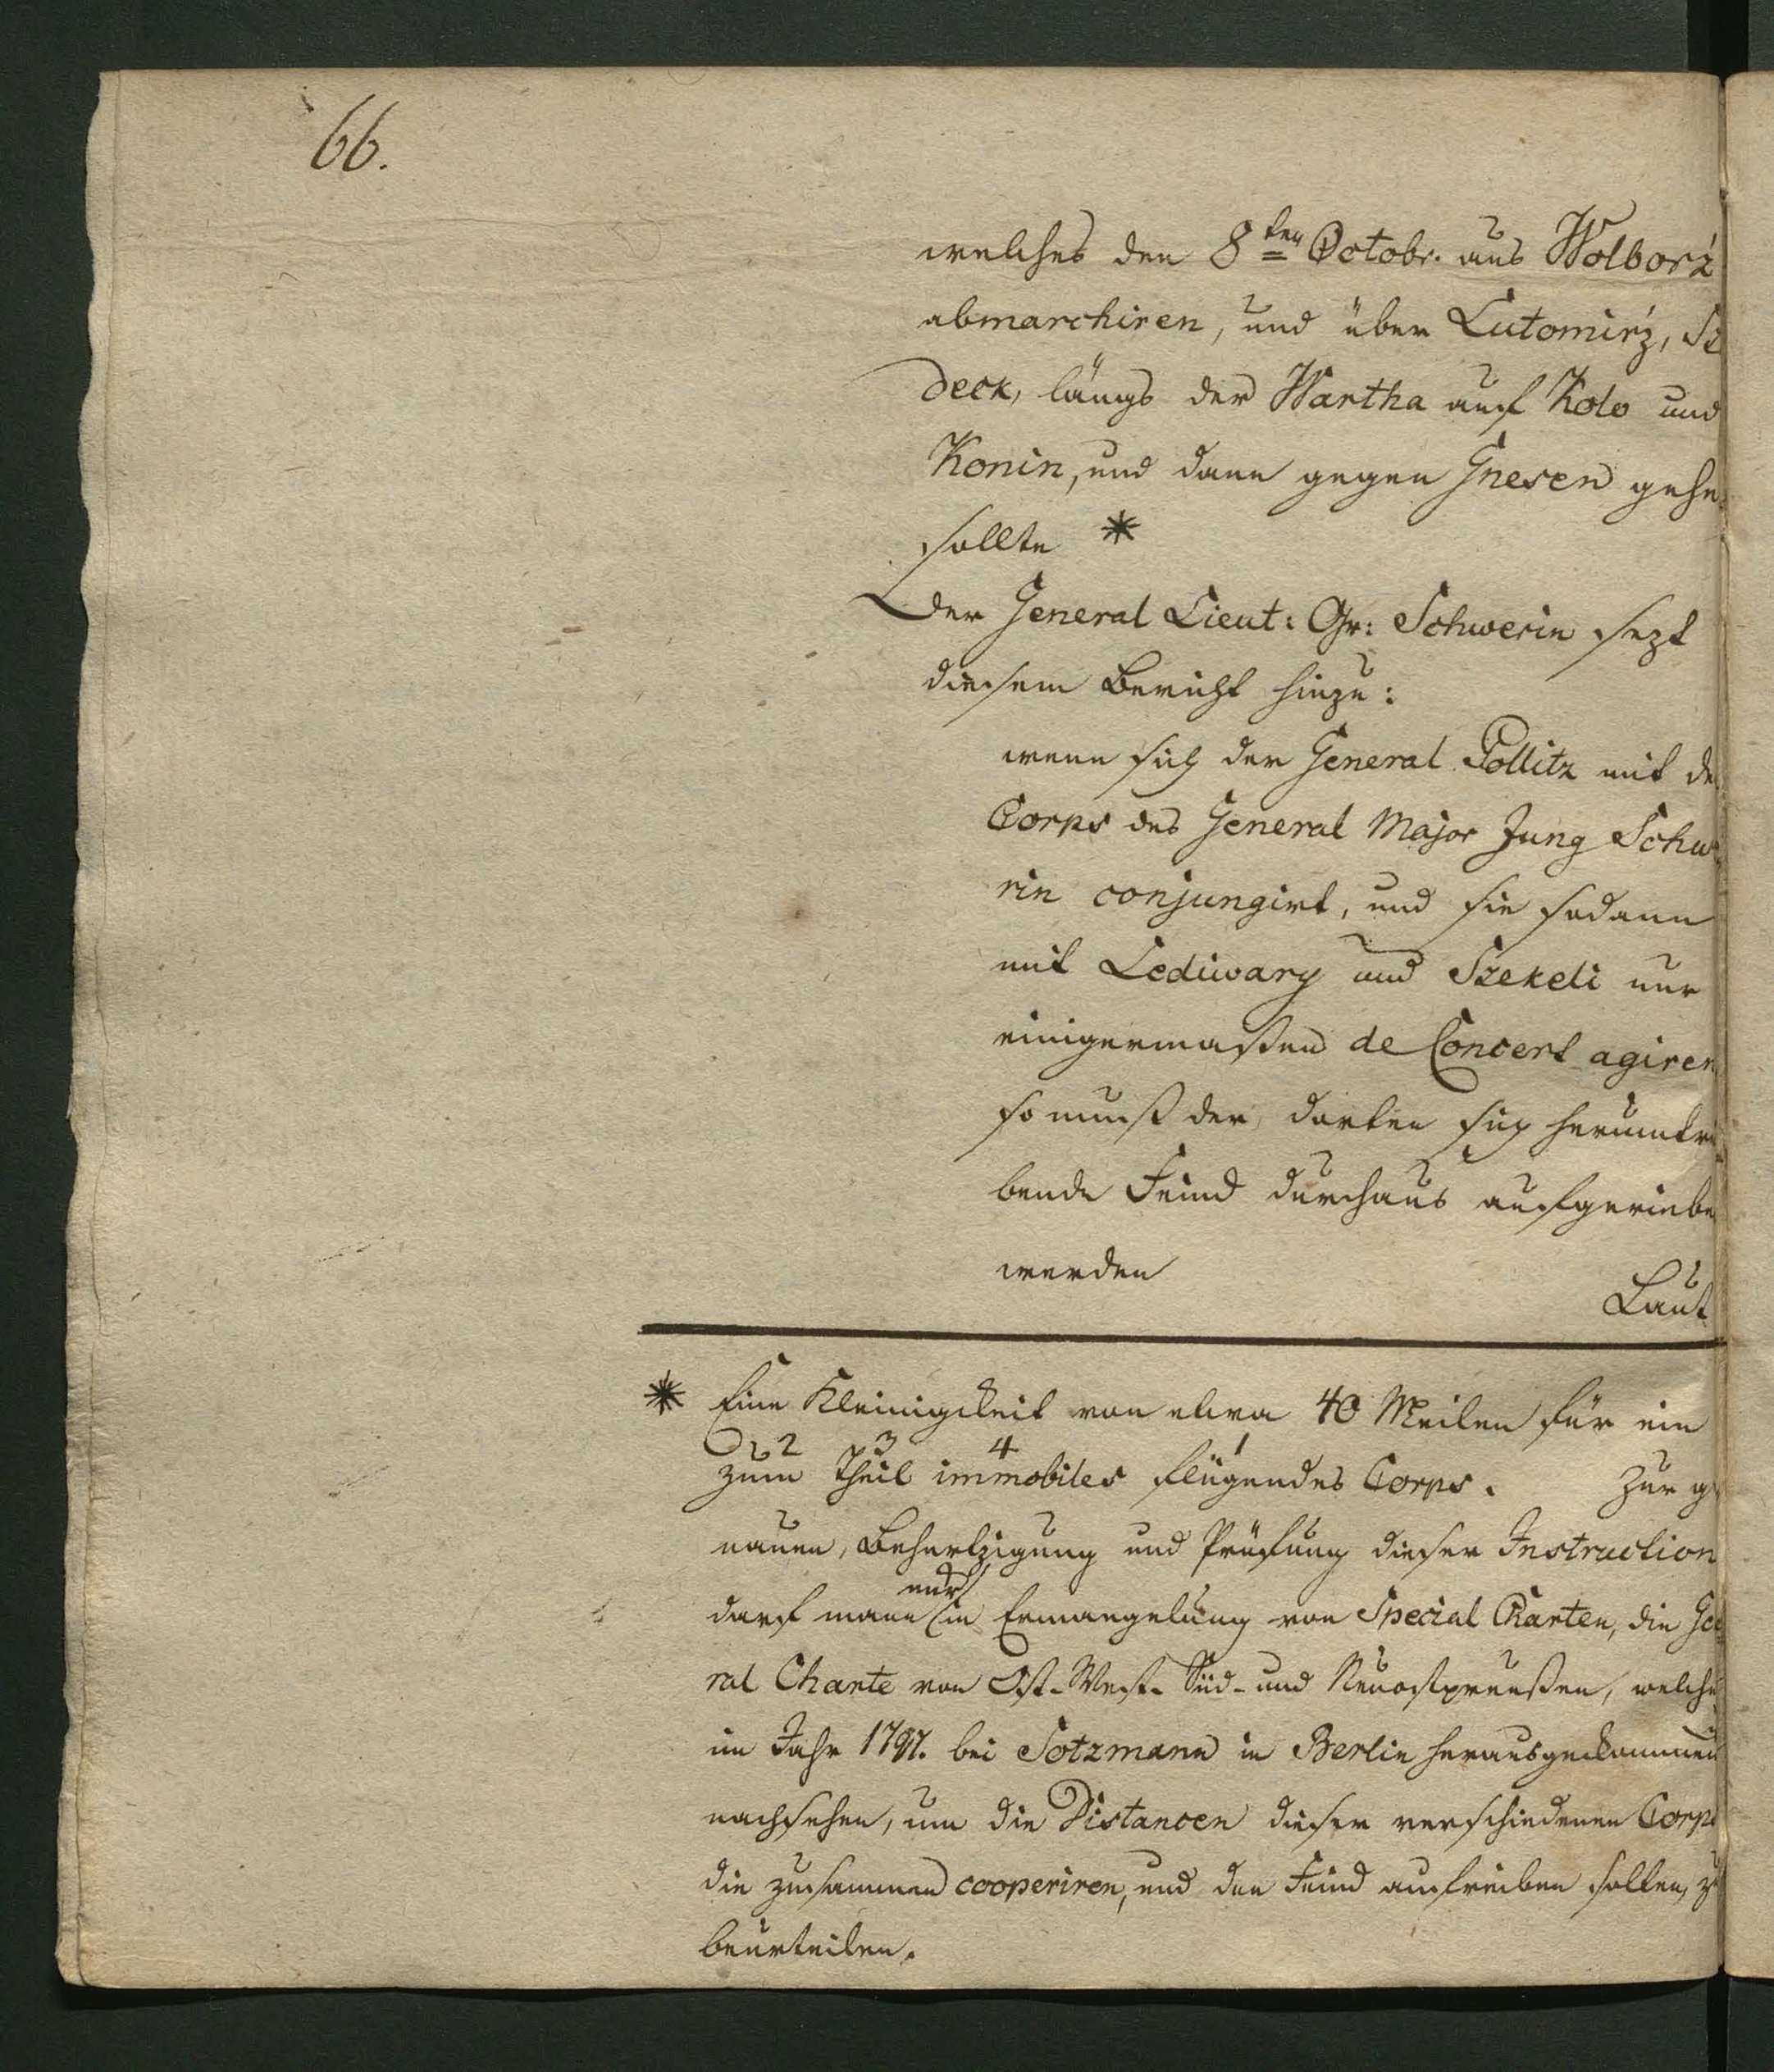 66.
welches den 8ten Octobr. aus Wolborź
abmarchiren, und über Lutomirź, Sz
deck, längs der Wartha auf Kolo und
Konin, und dann gegen Gnesen gehe
sollte *
Der General Lieut: Gr: Schwerin sezt
diesem Bericht hinzu:
wenn sich der General Pollitz mit de
Corps des General Major Jung Schw
rin conjungirt, und sie sodann
mit Lediwary und Szekeli nur
einigermaßen de Concert agiren
so muß der, dorten sich herumtrei
bende Feind durchaus aufgeriebe
werden
Laut
* Eine Kleinigkeit von etwa 40 Meilen für ein
2 3 4 1
zum Theil immobiles fliegendes Corps. Zur ge
nauen, Behertzigung und Prüfung dieser Instruction
nur
darf mann in Ermangelung von Special Charten, die Gene
ral Charte von Ost-West-Süd- und Neuostpreußen, welche
im Jahr 1797. bei Sotzmann in Berlin herausgekommen
nachsehen, um die Distancen dieser verschiedenen Corps
die zusammen cooperiren, und den Feind aufreiben sollten, zu
beurteilen.